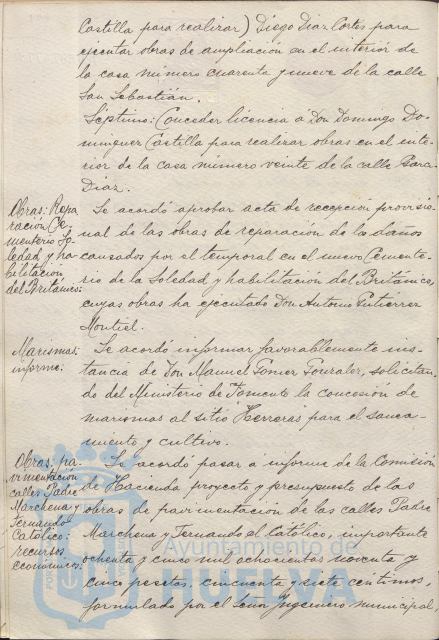 Castilla para realizar) Diego Diaz Cortes para
ejecutar obras de ampliación en el interior de
la casa número cuarenta y nueve de la calle
San Sebastián.
Séptimo: Conceder licencia a Don Domingo Do-
minguez Castilla para realizar obras en el inte-
rior de la casa número veinte de la calle Para-
Diaz.
Obras: Repa
ración Ce-
menterio So-
ledad y ha-
bilitación
del Británico:
Se acordó aprobar acta de recepción provisio-
nal de las obras de reparación de la daños
causados por el temporal en el nuevo Cemente-
rio de la Soledad y habilitación del Británico,
cuyas obras ha ejecutado Don Antonio Gutierrez
Montiel.
Marismas:
informe:
Se acordó informar favorablemente ins-
tancia de Don Manuel Gomez Gonzalez, solicitan-
do del Ministerio de Fomento la concesión de
marismas al sitio Herreras para el sanea-
miento y cultivo.
Obras: pa-
vimentación
calles Padre
Marchena y
Fernando
Católico:
recursos
económicos:
Se acordó pasar a informe de la Comisión
de Hacienda proyecto y presupuesto de las
obras de pavimentación de las calles Padre
Marchena y Fernando el Católico, importante
ochenta y cinco mil ochocientas noventa y
cinco pesetas, cincuenta y siete centimos,
formulado por el Señor Ingeniero municipal,
Ayuntamiento de
HUELVA